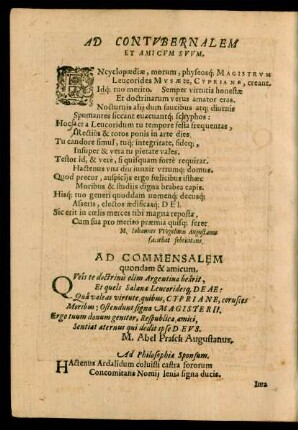 AD CONTVBERNALEM
ET AMICVM SVVM.
ENcyclopædiæ, morum, physeosq́; MAGISTRVM
Leucorides MVSÆ te, CYPRIANE, creant.
Idq́; tuo merito. Semper virtutis honestæ
Et doctrinarum verus amator eras.
Nocturnis alij dum faucibus atq́; diurnis
Spumantes siccant evacuantq́; scyphos:
Hoc à Leucoridum tu tempore festa frequentas,
& totos ponis in arte dies.
Tu candore simul, tuiq́; integritate, fideq́;,
Insuper & vera tu pietate vales.
Testor id, & vere, si quisquam forte requirat.
Hactenus vna diu iunxit utrumq́; domus.
Quod precor, auspicijs ergo felicibus isthæc
Moribus & studiis digna brabea capis.
Hisq́; tuo generi quoddam nomenq́; decusq́;
Asseris, electos ædificasq́; DEI.
Sic erit in cœlis merces tibi magna reposta,
Cum sua pro merito præmia quisq́; feret.
M. Iohannes Augustanus
faciebat
AD COMMENSALEM
quondam & amicum.
QVeis te doctrinis olim Argentina beavit,
Et queis Salana Leucoridesq́; DEAE:
Quâ valeas virtute, quibus, CYPRIANE, coruscas
Moribus; Ostendunt signa MAGISTERII.
Ergo tuum donum genitor, Respublica, amici,
Sentiat æternus qui dedit ipse DEVS.
M. Abel Prasch Augustanus.
Ad Philosophiæ Sponsum.
HActenus Ardalidum coluisti castra sororum
Concomitans Nomij lenia signa ducis.
Iura